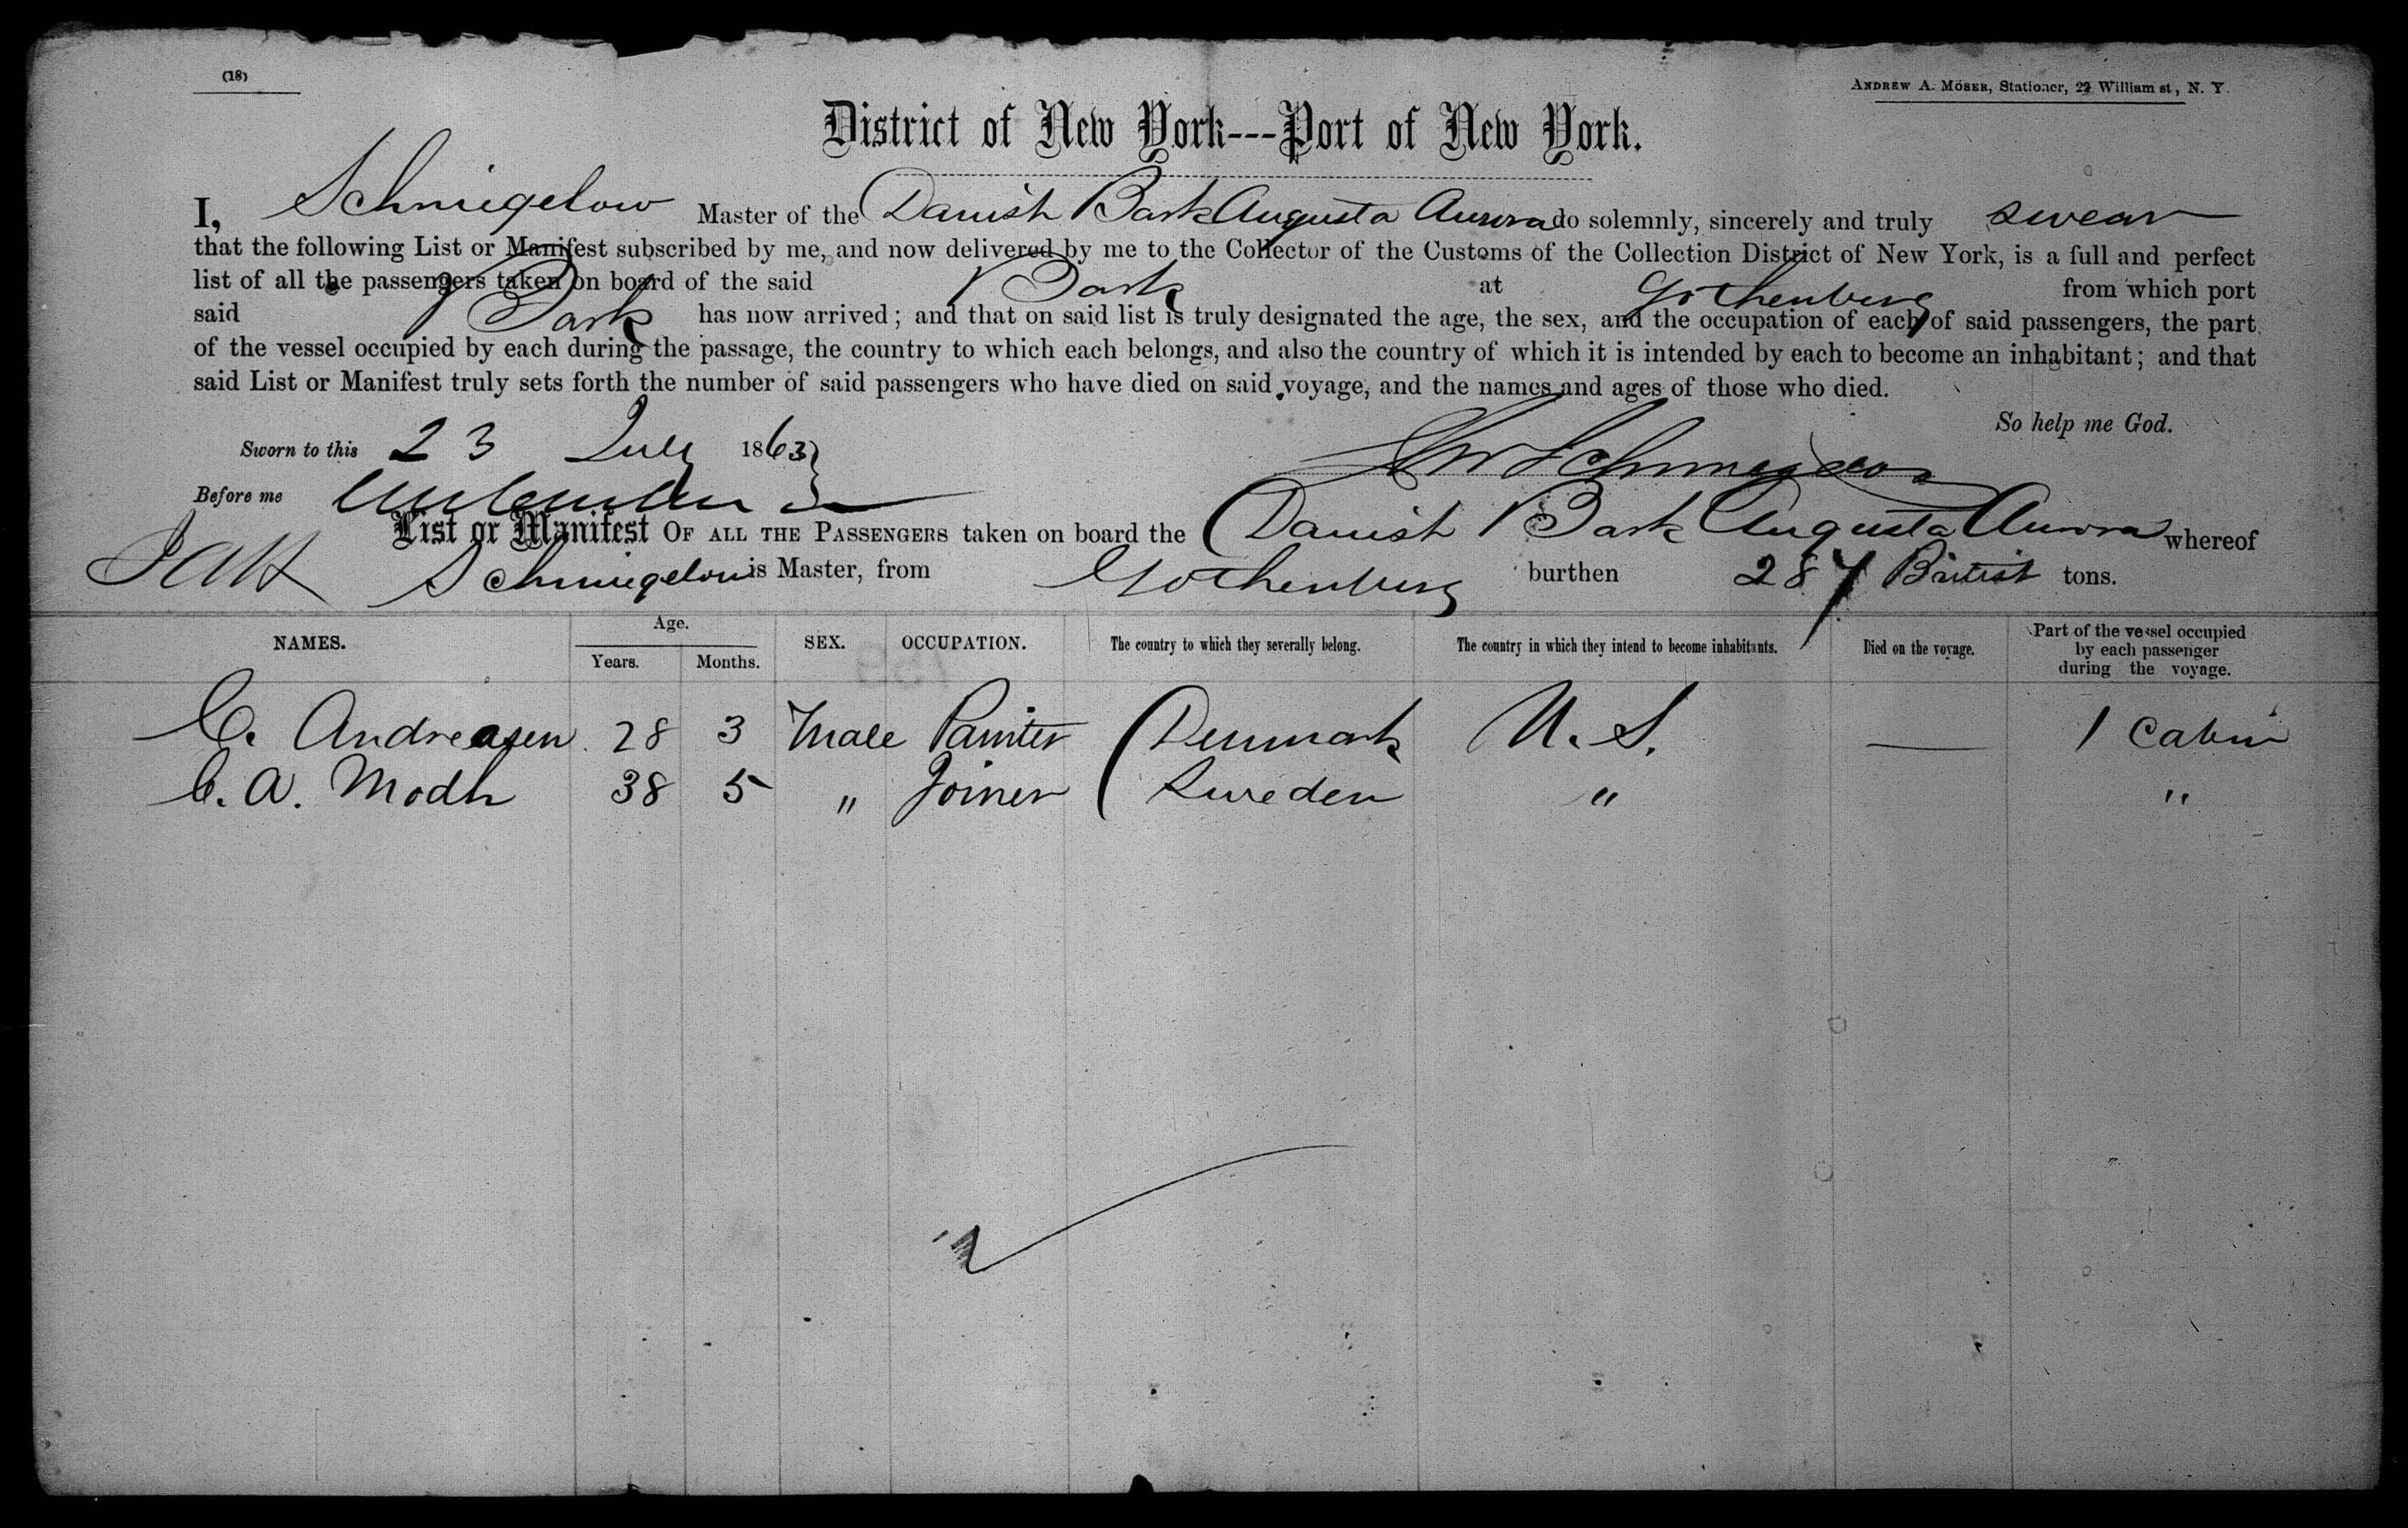 (18)
ANDREW A. MÖSER, Stationer, 22 William st, N. Y.
District of New York---Port of New York.
I, Schmiegelow Master of the Danish Bark Augusta Aurora do solemnly, sincerely and truly swear
that the following List or Manifest subscribed by me, and now delivered by me to the Collector of the Customs of the Collection District of New York, is a full and perfect
list of all the passengers taken on board of the said Bark at Gothenburg from which port
said Bark has now arrived; and that on said list is truly designated the age, the sex, and the occupation of each of said passengers, the part
of the vessel occupied by each during the passage, the country to which each belongs, and also the country of which it is intended by each to become an inhabitant; and that
said List or Manifest truly sets forth the number of said passengers who have died on said voyage, and the names and ages of those who died.
So help me God.
Sworn to this 23 July 1863
Before me
List or Manifest OF ALL THE PASSENGERS taken on board the Danish Bark Augusta Aurora whereof
Schmiegelow is Master, from Gothenburg burthen 287 British tons.
NAMES. Age. Years. Months. SEX. OCCUPATION. The country to which they severally belong. The country in which they intend to become inhabitants. Died on the voyage. Part of the vessel occupied by each passenger during the voyage.
C. Andreasen 28 3 Male Painter Denmark U. S. — 1 Cabin
C. A. Modh 38 5 " Joiner Sweden " "